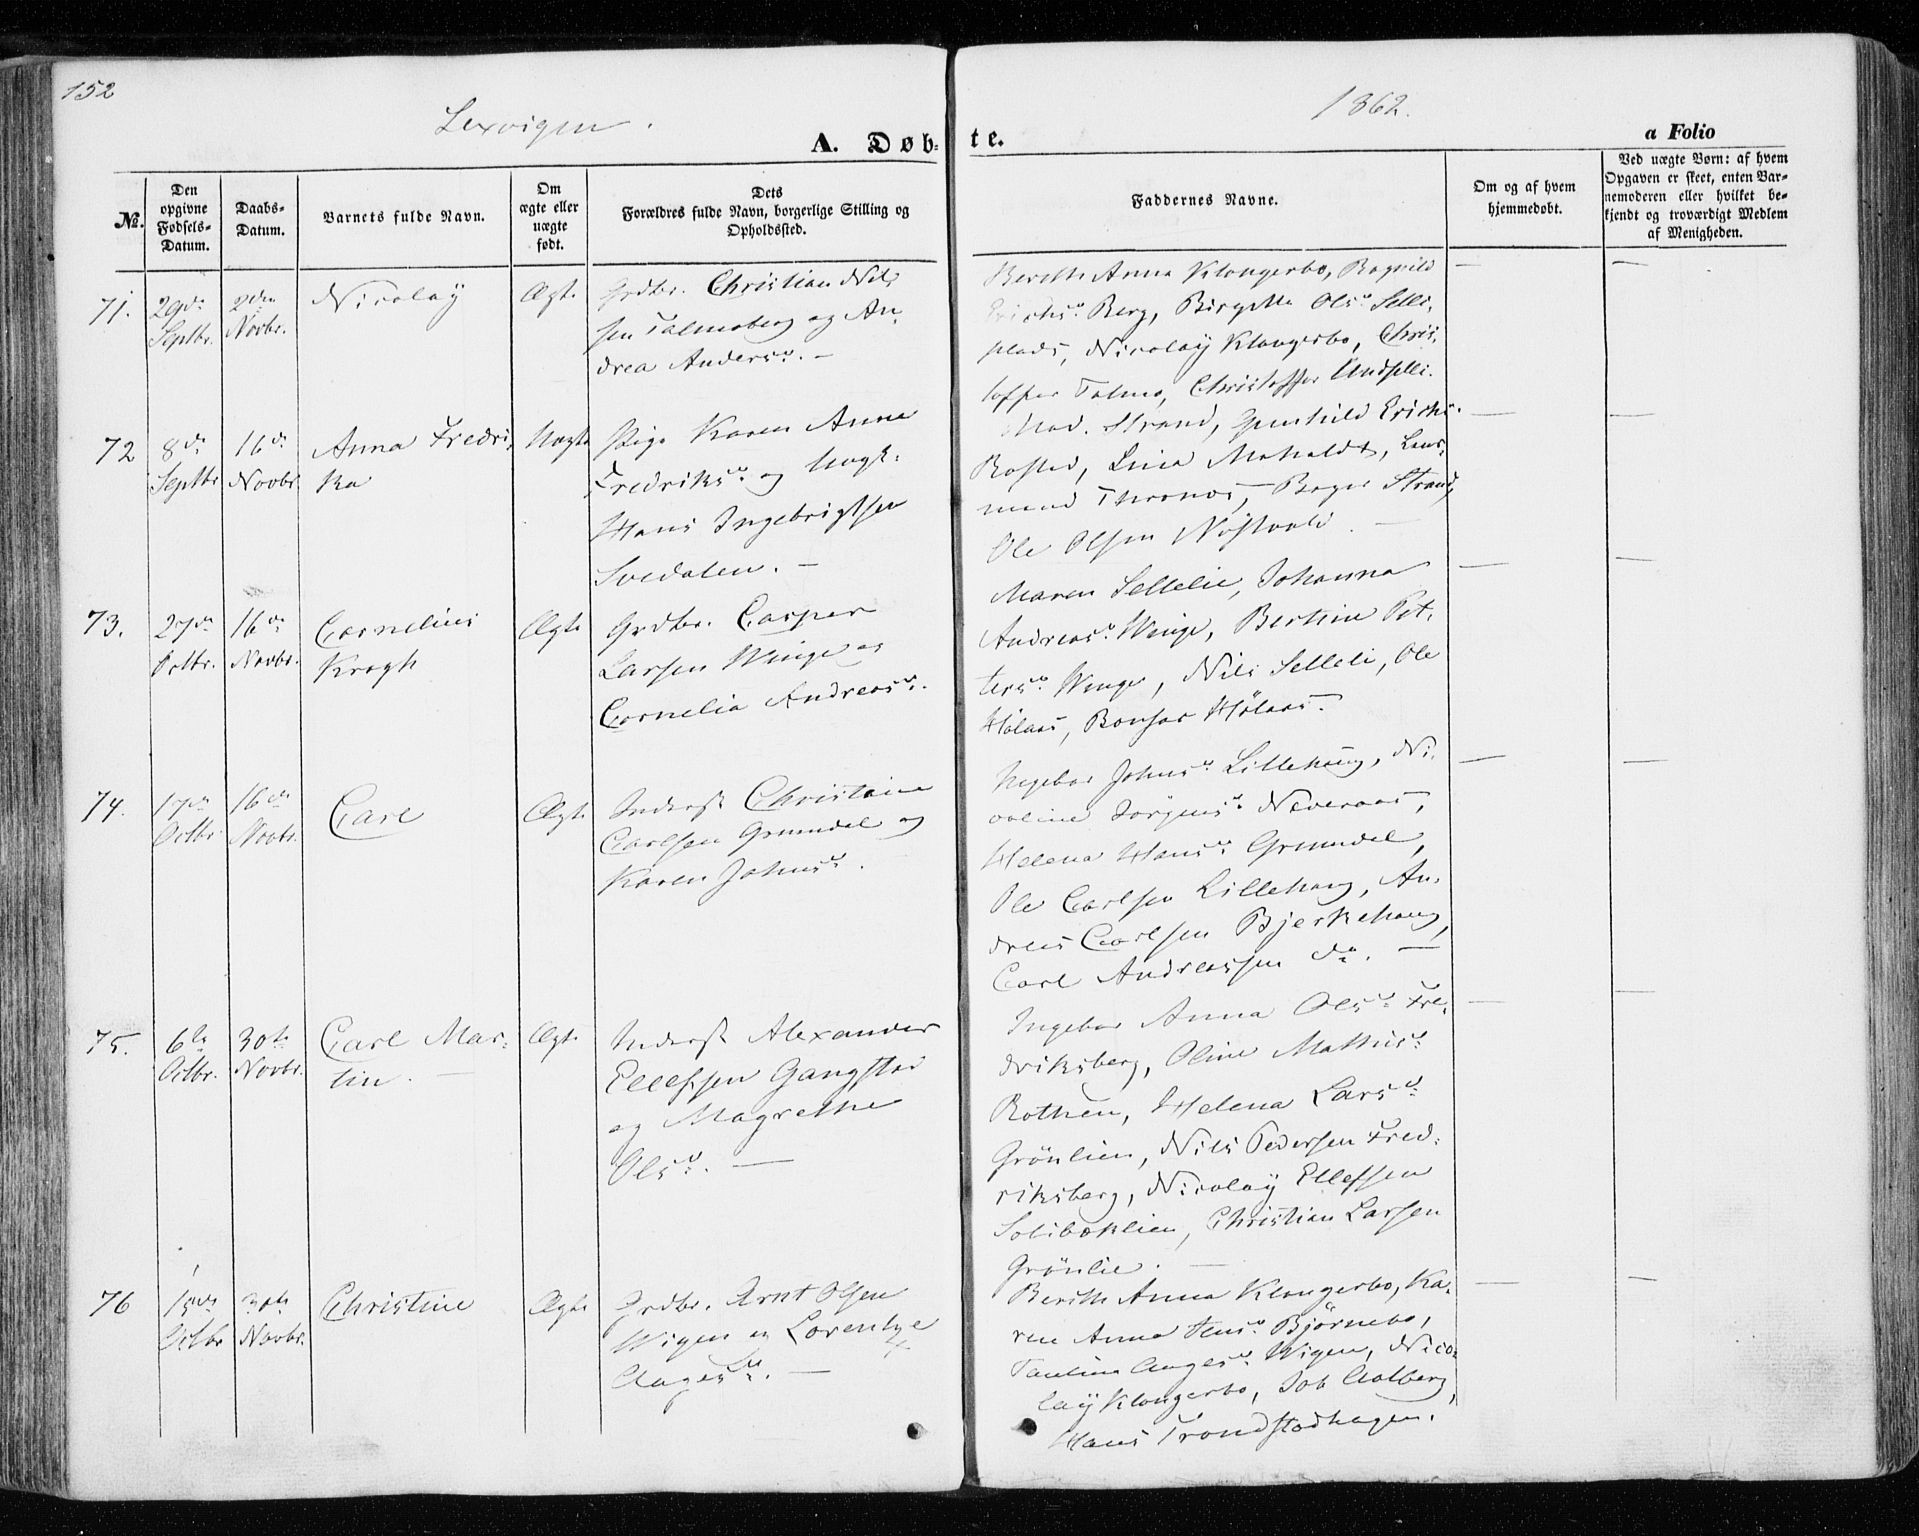 152
Lexvigen.
1862.
A. Døb-
te.
a Folio
№.
Den
opgivne
Fødsels-
Datum.
Daabs-
Datum.
Barnets fulde Navn.
Om
ægte eller
uægte
født.
Dets
Forældres fulde Navn, borgerlige Stilling og
Opholdssted.
Faddernes Navne.
Om og af hvem
hjemmedøbt.
Ved uægte Børn: af hvem
Opgaven er skeet, enten Bar-
nemoderen eller hvilket be-
kjendt og troværdigt Medlem
af Menigheden.
71.
29de
Septbr.
2den
Novbr.
Nicolaÿ
Ægte
Grdbr. Christian Nil-
sen Talmoberg og An-
drea Andersd. —
Berith Anna Klongerbo, Ragnild
Erichsd. Berg, Birgitta Olsd. Selli-
plads, Nicolaÿ Klongerbo, Chris-
toffer Talmo, Christoffer
72
8de
Septbr
16de
Novbr.
Anna Fredri-
ka
Uægte
Pige Karen Anna
Fredriksd. og Ungk:
Hans Ingebrigtsen
Svedalen. —
Mad. Strand, Gunhild Erichs.
Rosted, Lina
mand Thronæs, Strand,
Ole Olsen
73.
27de
Octbr.
16de
Novbr.
Cornelius
Krogh
Ægte
Grdbr. Casper
Larsen Winge og
Cornelia Andreasd.
Maren Sellelie, Johanna
Andreasd. Winge, Bertine Pet-
tersd. Winge, Nils Selleli, Ole
Hölaas, Bonsac Hölaas.
74.
17de
Octbr.
16de
Novbr.
Carl
Ægte
Inderst Christian
Carlsen Grundel og
Karen Johnsd.
Ingebor Johnsd. Lillehaug, Ni-
coline Jörgensd. Næveraas,
Helena Hansd. Grundel,
Ole Carlsen Lillehaug, An-
dreas Carlsen Bjerkehaug,
Carl Andreassen do. —
75.
6te
Octbr.
30te
Novbr.
Carl Mar-
tin. —
Ægte
Inderst Alexander
Ellefsen Gangstad
og Magrethe
Olsd. —
Ingebor Anna Olsd. Fre-
driksberg, Oline Mathisd.
Rothen, Helena Larsd.
Grönlien, Nils Pedersen Fred-
riksberg, Nicolaÿ Ellefsen
Solibaklien, Christian Larsen
Grönlie. —
76
15de
Octbr
30te
Novbr.
Christine
Ægte
Grdbr. Arnt Olsen
Wigen og Lorentze
Aagesd. —
Berith Anna Klongerbo, Ka-
ren Anna Jensd. Björnebo,
Paulina Aagesd. Wigen, Nico-
laÿ Klongerbo, Job Aalberg,
Hans Trondstadhagen.